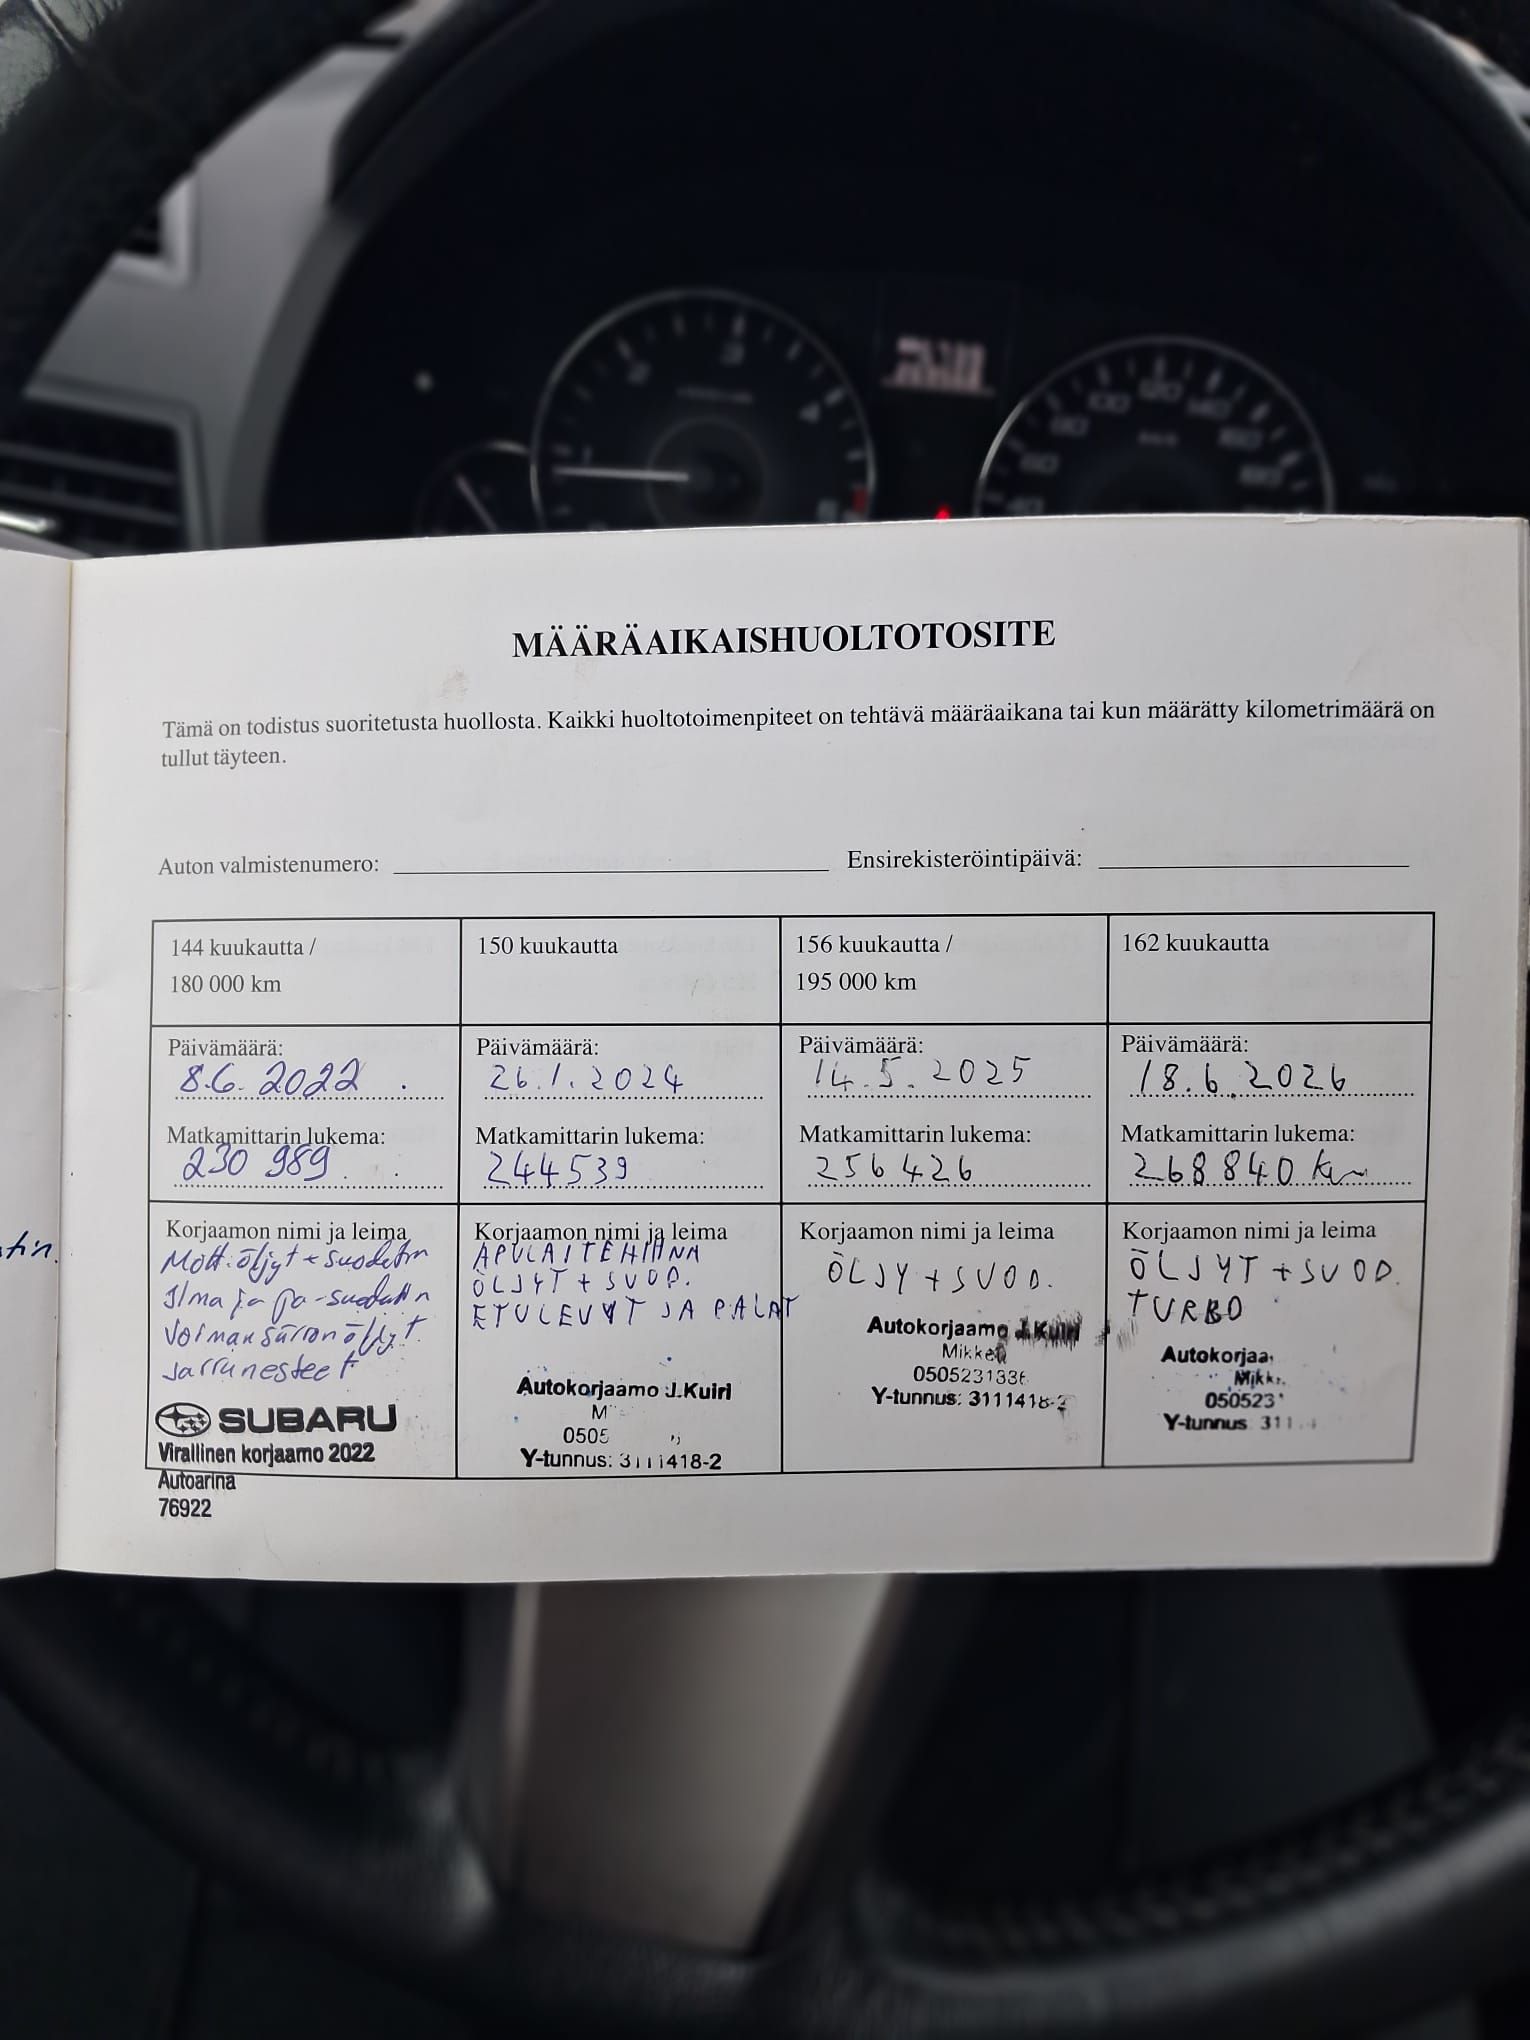 MÄÄRÄAIKAISHUOLTOTOSITE
Tämä on todistus suoritetusta huollosta. Kaikki huoltotoimenpiteet on tehtävä määräaikana tai kun määrätty kilometrimäärä on
tullut täyteen.
Auton valmistenumero:
Ensirekisteröintipäivä:
144 kuukautta /
180 000 km
Päivämäärä:
8.6.2022
Matkamittarin lukema:
230 989
Korjaamon nimi ja leima
Mott.öljyt + suodatin
Ilma ja pa-suodatin
Voimansiirron öljyt.
Jarrunesteet
SUBARU
Virallinen korjaamo 2022
Autoarina
76922
150 kuukautta
Päivämäärä:
26.1.2024
Matkamittarin lukema:
244539
Korjaamon nimi ja leima
APULAITEHIHNA
ÖLJYT + SUOD.
ETULEVYT JA PALAT
Autokorjaamo J.Kuiri
M
0505
Y-tunnus: 3111418-2
156 kuukautta /
195 000 km
Päivämäärä:
14.5.2025
Matkamittarin lukema:
256426
Korjaamon nimi ja leima
ÖLJY + SUOD.
Autokorjaamo J.Kuiri
Mikkeli
0505231336
Y-tunnus: 3111418-2
162 kuukautta
Päivämäärä:
18.6.2026
Matkamittarin lukema:
268840 km
Korjaamon nimi ja leima
ÖLJYT + SUOD.
TURBO
Autokorjaa
Mikk
050523
Y-tunnus 311
1
2
3
4
5
40
60
80
100
120
140
160
180